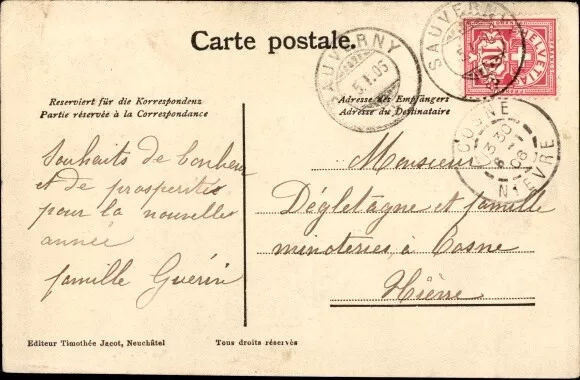 Carte postale.
SAUVERNY
5.I.06
SAUVERNY
HELVETIA
10
Reserviert für die Korrespondenz
Partie réservée à la Correspondance
Adresse des Empfängers
Adresse du Destinataire
COSNE
NIEVRE
Souhaits de bonheur
et de prosperité
pour la nouvelle
année
famille Guerin
Monsieur
Dégletagne et famille
minoteries à Cosne
Nièvre
Editeur Timothée Jacot, Neuchâtel
Tous droits réservés